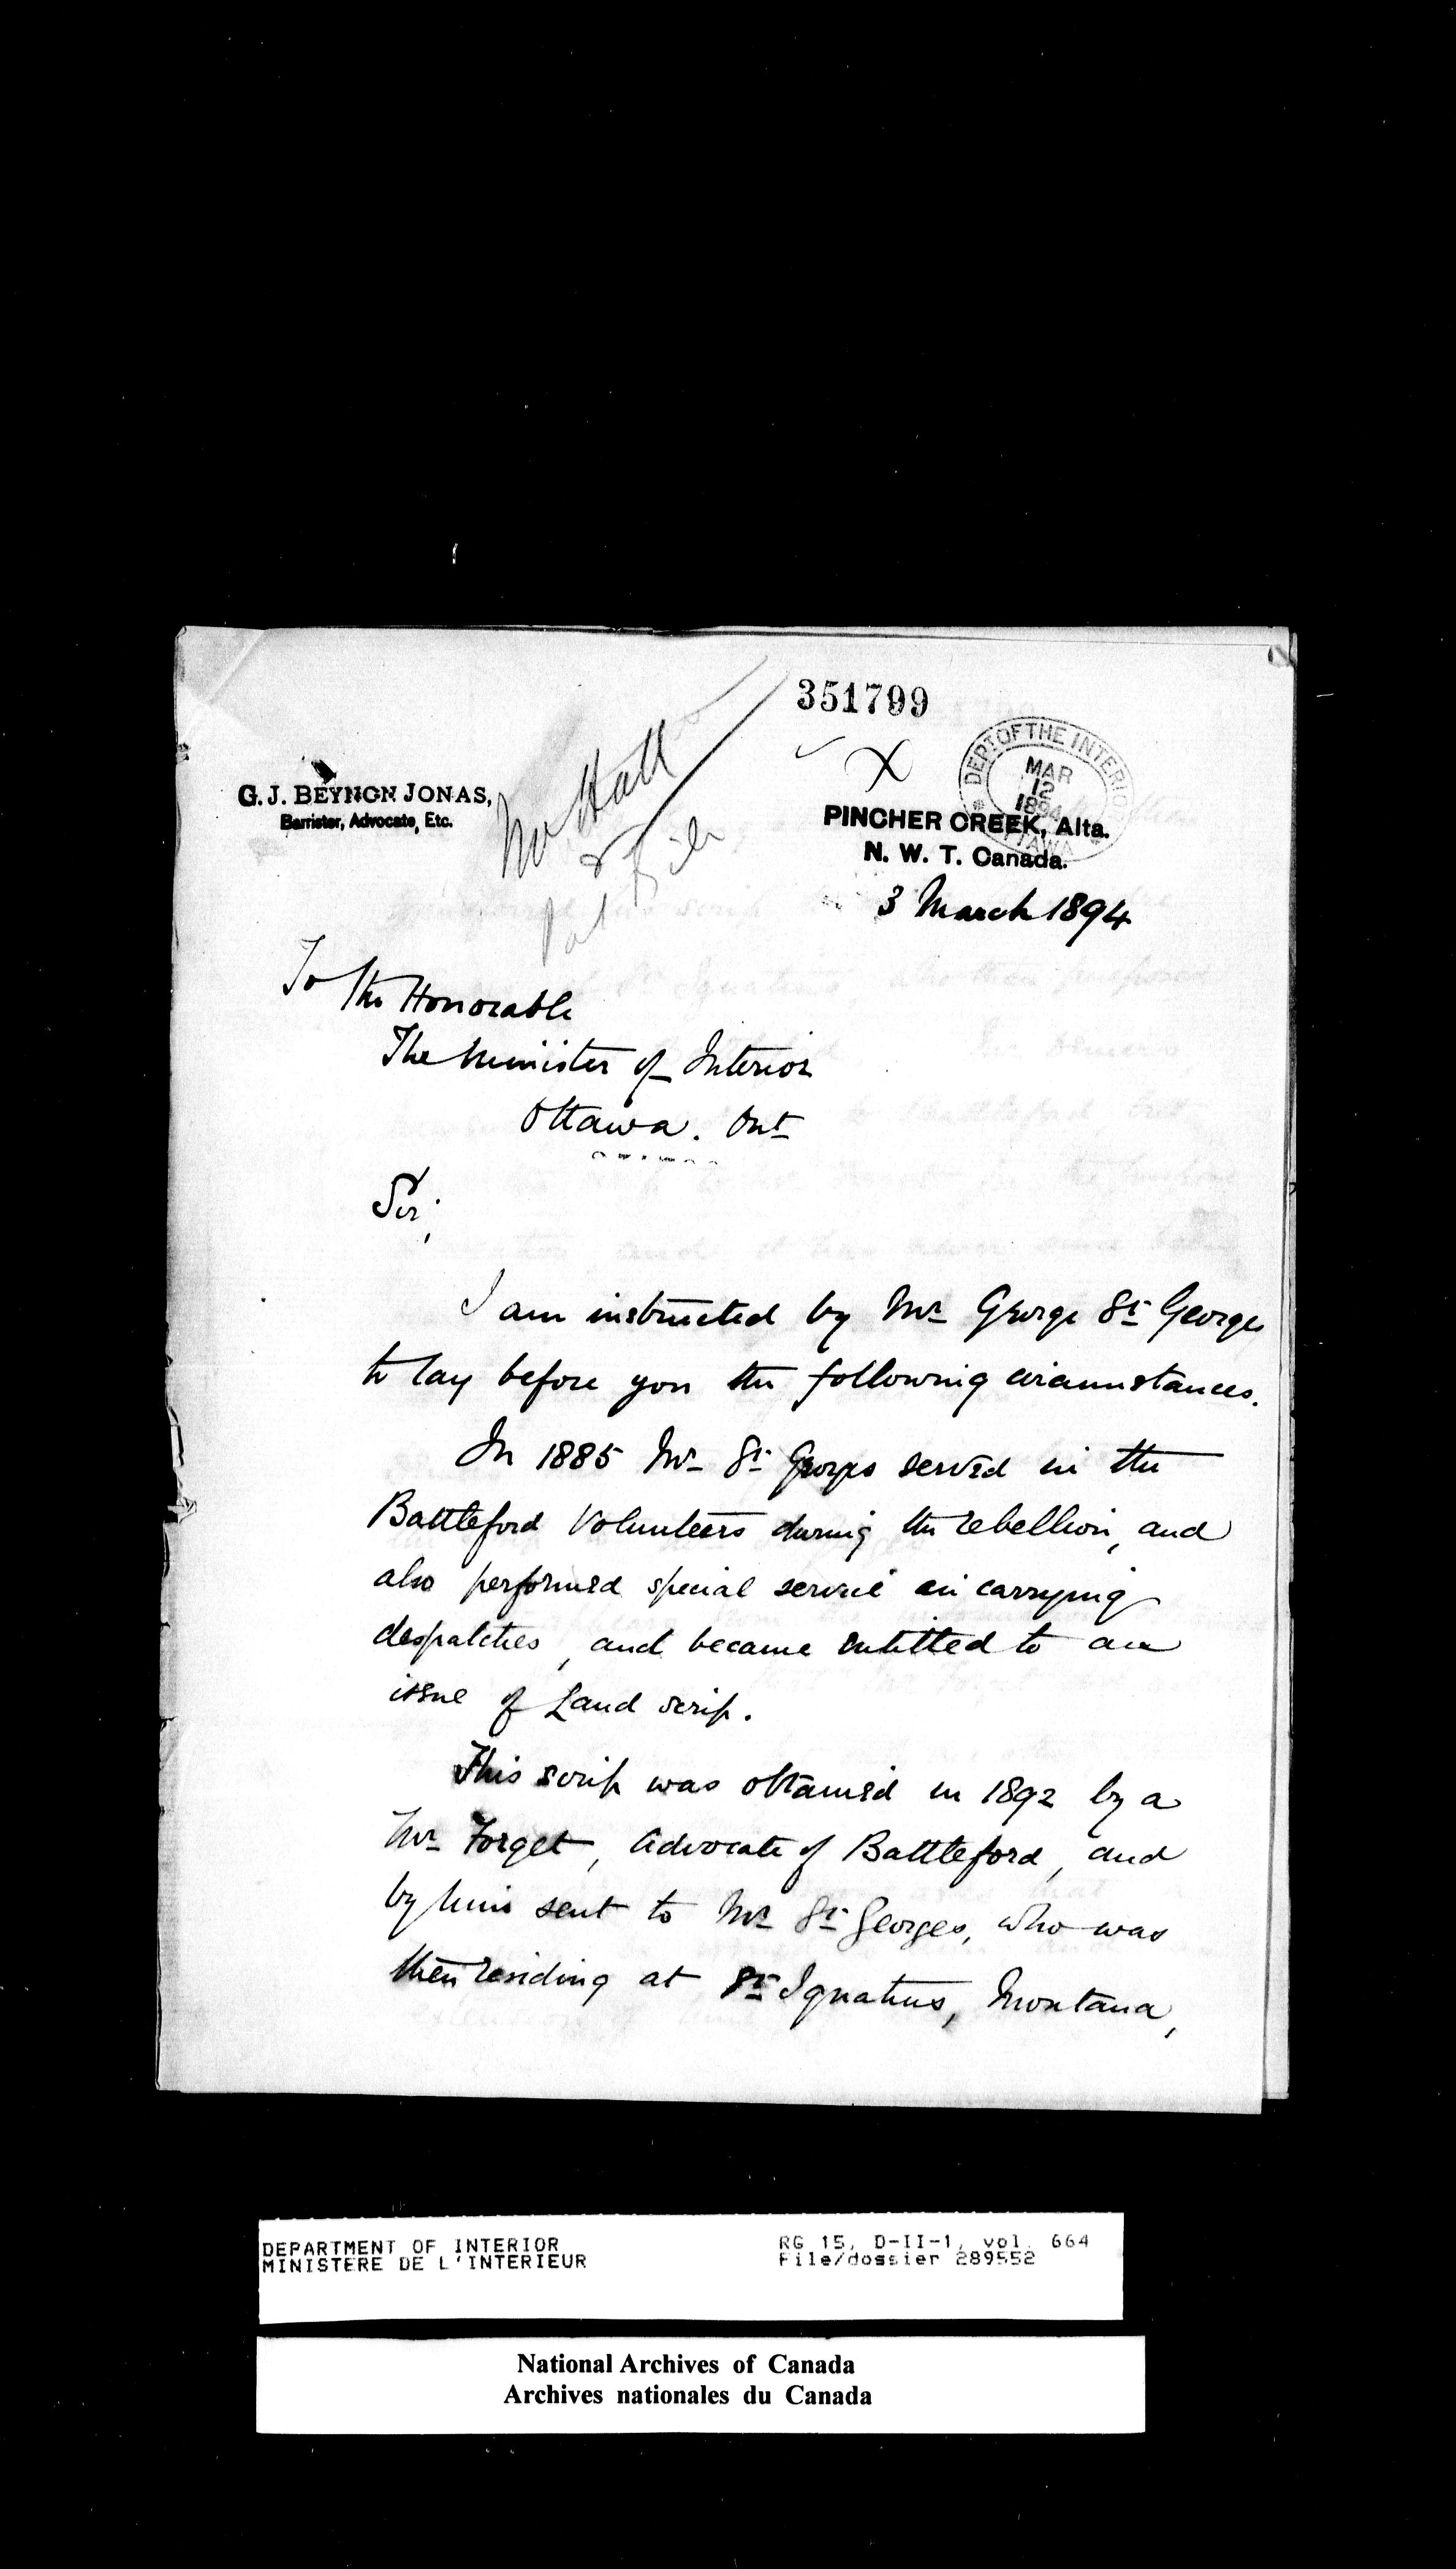 351799
G. J. BEYNON JONAS,
Barrister, Advocate, Etc.
Mr Hall
Pat File
X
DEPT. OF THE INTERIOR
MAR
12
1894
OTTAWA
PINCHER CREEK, Alta.
N. W. T. Canada.
3 March 1894
To the Honorable
The Minister of Interior
Ottawa. Ont
Sir,
I am instructed by Mr George St Georges
to lay before you the following circumstances.
In 1885 Mr St Georges served in the
Battleford Volunteers during the rebellion, and
also performed special service in carrying
despatches, and became entitled to an
issue of Land scrip.
This scrip was obtained in 1892 by a
Mr Forget, Advocate of Battleford, and
by him sent to Mr St Georges, who was
then residing at St Ignatius, Montana,
DEPARTMENT OF INTERIOR
MINISTERE DE L'INTERIEUR
RG 15, D-II-1, vol. 664
File/dossier 289552
National Archives of Canada
Archives nationales du Canada